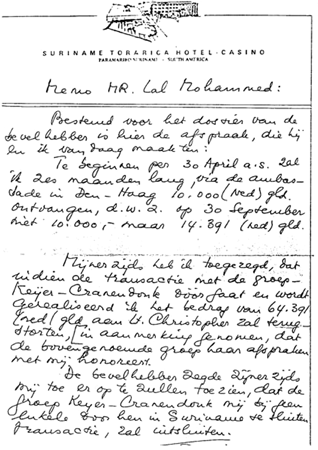 SURINAME TORARICA HOTEL - CASINO
PARAMARIBO SURINAME - SOUTH AMERICA
Memo MR. Lal Mohammed:
Bestemd voor het dossier van de
bevelhebber is hier de afspraak, die hij
en ik vandaag maakten:
Te beginnen per 30 April a.s. zal
ik zes maanden lang, via de ambas-
sade in Den-Haag 10.000 (Ned) gld.
ontvangen, d.w.z. op 30 September
niet 10.000,- maar 14.891 (ned) gld.
Mijnerzijds heb ik toegezegd, dat
indien de transactie met de groep-
Keijer-Cranendonk doorgaat en wordt
gerealiseerd ik het bedrag van 64.891
(ned) gld aan St. Christopher zal terug-
storten, in aanmerking genomen, dat
de bovengenoemde groep haar afspraken
met mij honoreert.
De bevelhebber zegde zijnerzijds
mij toe er op te zullen toezien, dat de
groep Keyer-Cranendonk mij bij geen
enkele door hen in Suriname te sluiten
transactie, zal uitsluiten.